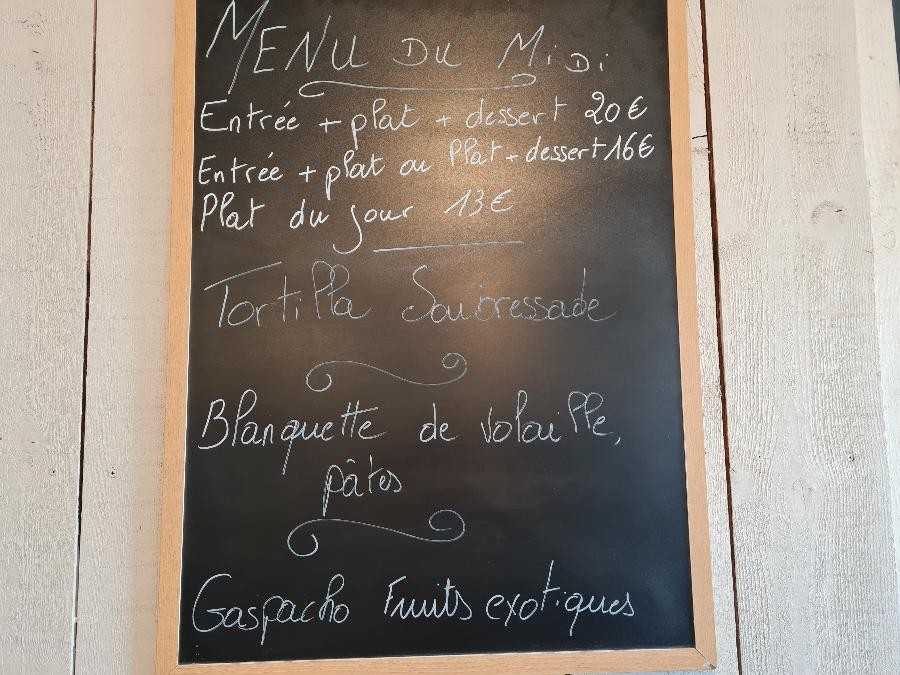 MENU DU MiDi
Entrée + plat + dessert 20€
Entrée + plat ou Plat + dessert 16€
Plat du jour 13€
Tortilla Soubressade
Blanquette de volaille,
pâtes
Gaspacho Fruits exotiques